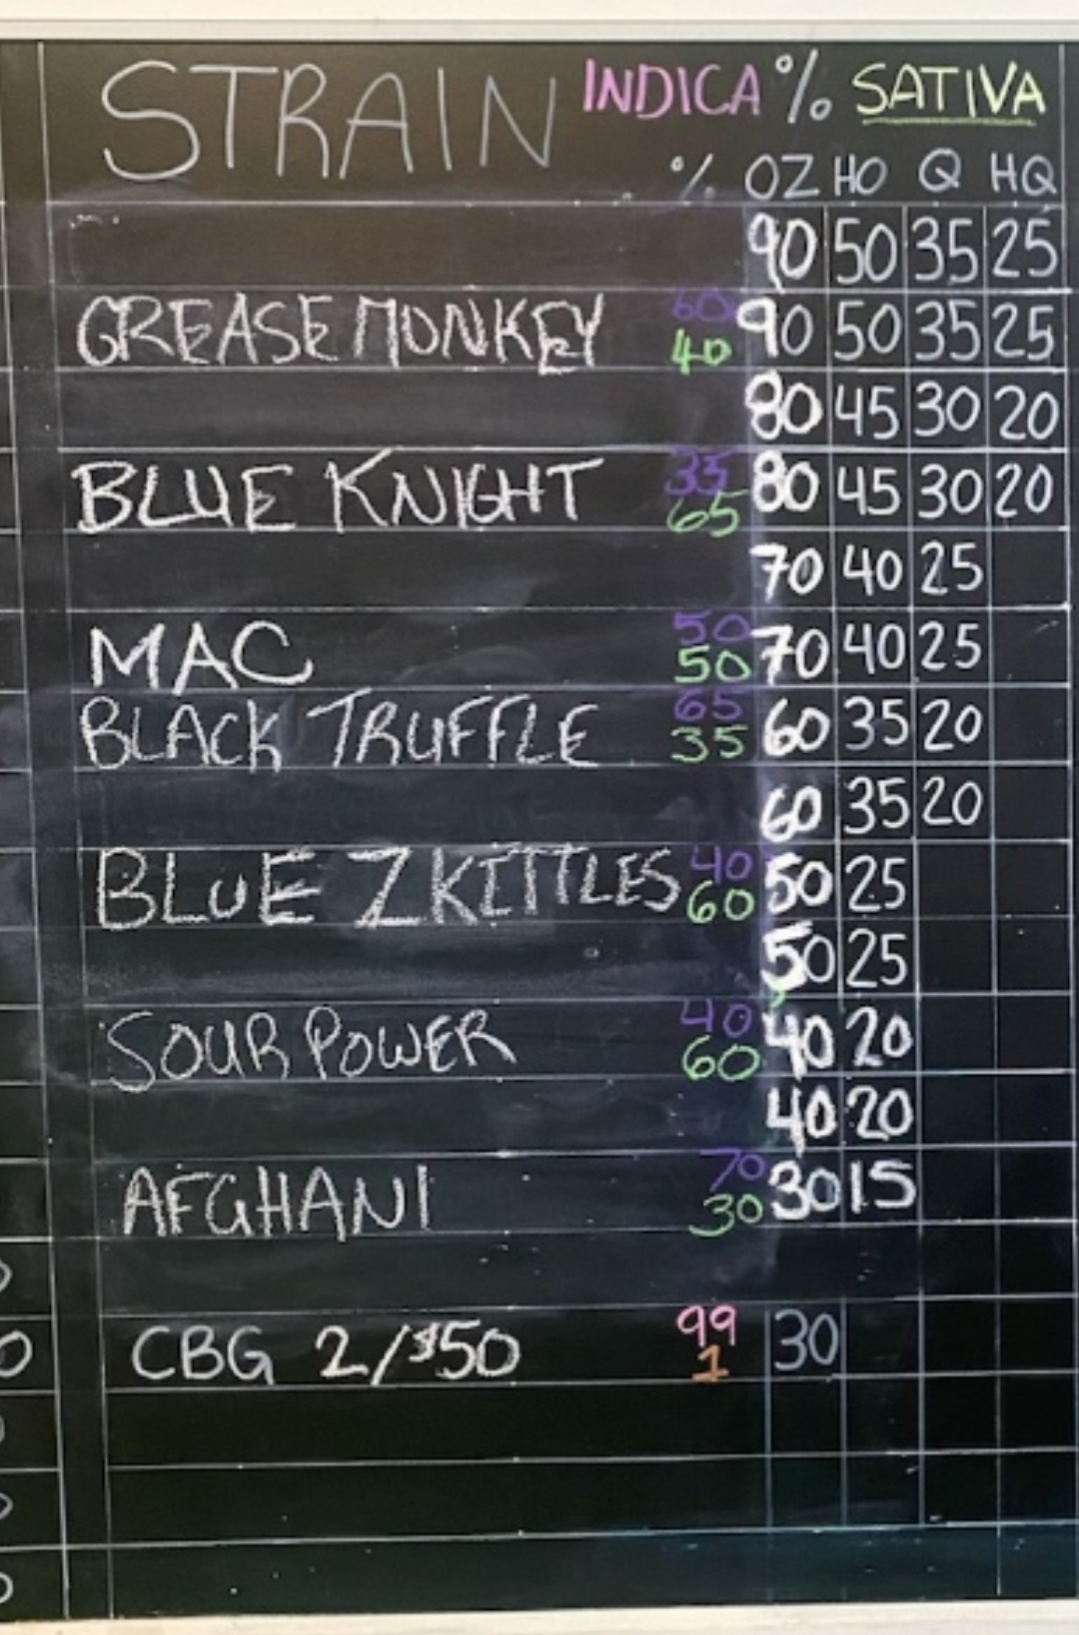 STRAIN INDICA % SATIVA
% OZ HO Q HQ
90 50 35 25
GREASE MONKEY 60 40 90 50 35 25
80 45 30 20
BLUE KNIGHT 35 65 80 45 30 20
70 40 25
MAC 50 50 70 40 25
BLACK TRUFFLE 65 35 60 35 20
60 35 20
BLUE ZKITTLES 40 60 50 25
50 25
SOUR POWER 40 60 40 20
40 20
AFGHANI 70 30 30 15
CBG 2/$50 99 1 30